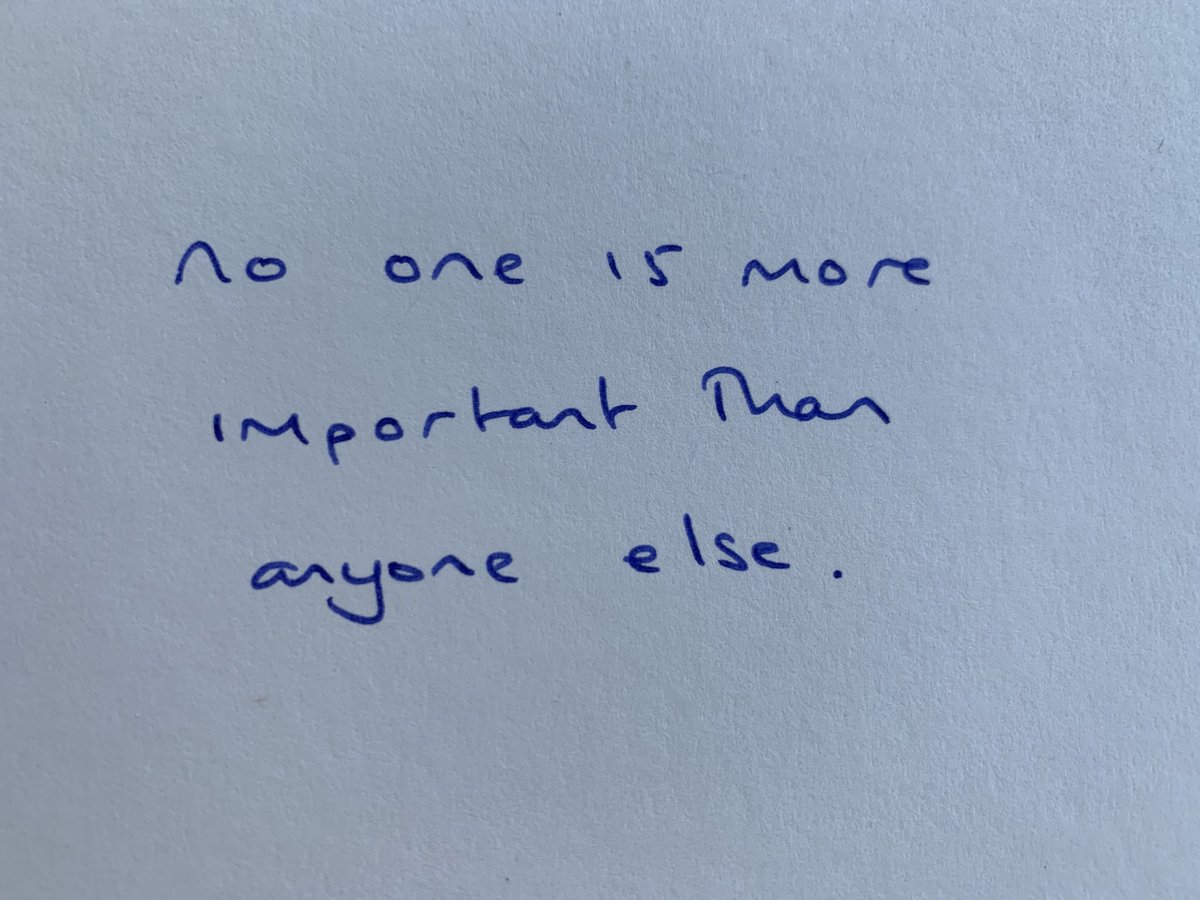 no one is more
important than
anyone else.